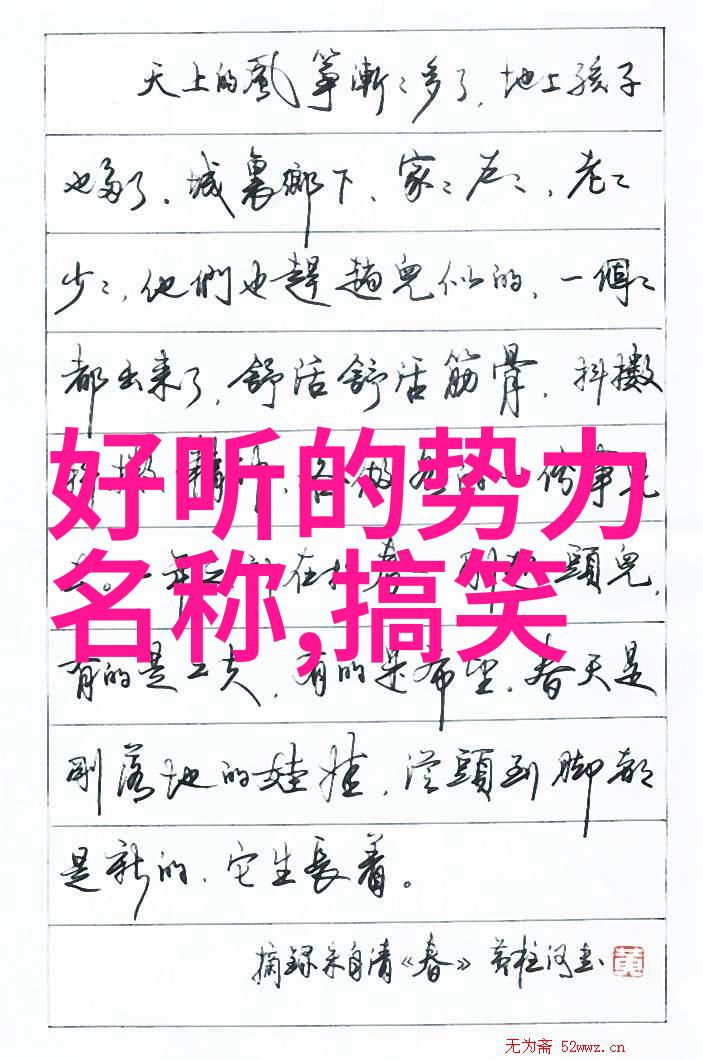 天上的風箏漸〻多了,地上孩子
也多了。城裏鄉下,家〻户〻,老〻
少〻,他們也趕趟兒似的,一個〻
都出来了,舒活舒活筋骨,抖擻
好听的势力
份事兒
名称,搞笑
頭兒,
有的是工夫,有的是希望。春天是
剛落地的娃娃,從頭到脚都
是新的,它生長着。
摘録朱自清《春》 黄柱河書 黄
无为斋 52wwz.cn